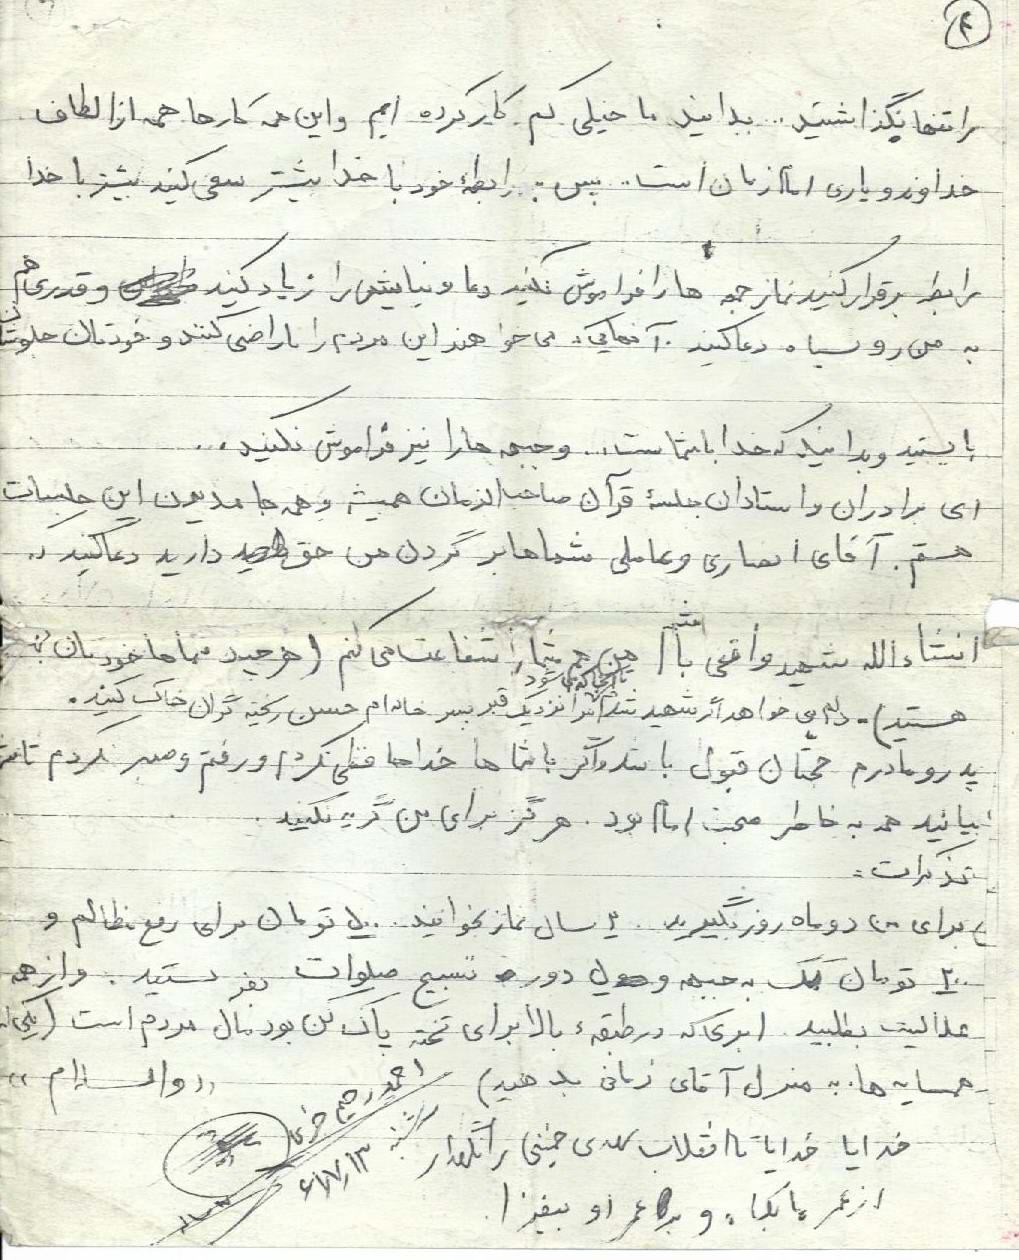 ۴
را تنها نگذاشتید.. بدانید ما خیلی کم کار کرده ایم و این همه کارها همه از الطاف
خداوند و یاری امام زمان است.. پس به رابطهٔ خود با خدا بیشتر سعی کنید بیشتر با خدا
رابطه برقرار کنید نماز جمعه ها را فراموش نکنید دعا و نیایش را زیاد کنید و قدری هم
به من رو سیاه دعا کنید. آنهایی که می خواهند این مردم را ناراضی کنند و خودتان جلوشان
بایستید و بدانید که خدا با شماست... و جبهه ها را نیز فراموش نکنید...
ای برادران و استادان جلسهٔ قرآن صاحب الزمان همیشه و همه جا مدیون این جلسات
هستم. آقای انصاری و عاملی شماها بر گردن من حق دارید دعا کنید که
انشاءالله شهید واقعی باشم من هم شما را شفاعت می کنم (هر چند شماها خودتان
هستید). دلم می خواهد اگر شهید شدم تا آنجا که می شود مرا نزدیک قبر پسر خاله ام حسن ریخته گران خاک کنید.
پدر و مادرم حجتان قبول باشد و اگر با شماها خداحافظی نکردم و رفتم و صبر نکردم تا شما
بیائید همه به خاطر محبت امام بود. هرگز برای من گریه نکنید.
تذکرات:
برای من دو ماه روزه بگیرید. ۲ سال نماز بخوانید.. تومان برای رفع مظالم و
تومان کمک به جبهه و دوره تسبیح صلوات بفرستید. و از همه
حلالیت بطلبید. ابری که در طبقهٔ بالا برای تخته پاک کن بود مال مردم است (یکی از
همسایه ها. به منزل آقای زمانی بدهید) «والسلام»
احمد رحیم خزی
شنبه ۶۱/۷/۱۳
خدایا خدایا تا انقلاب مهدی خمینی را نگهدار
از عمر ما بکاه و بر عمر او بیفزا.